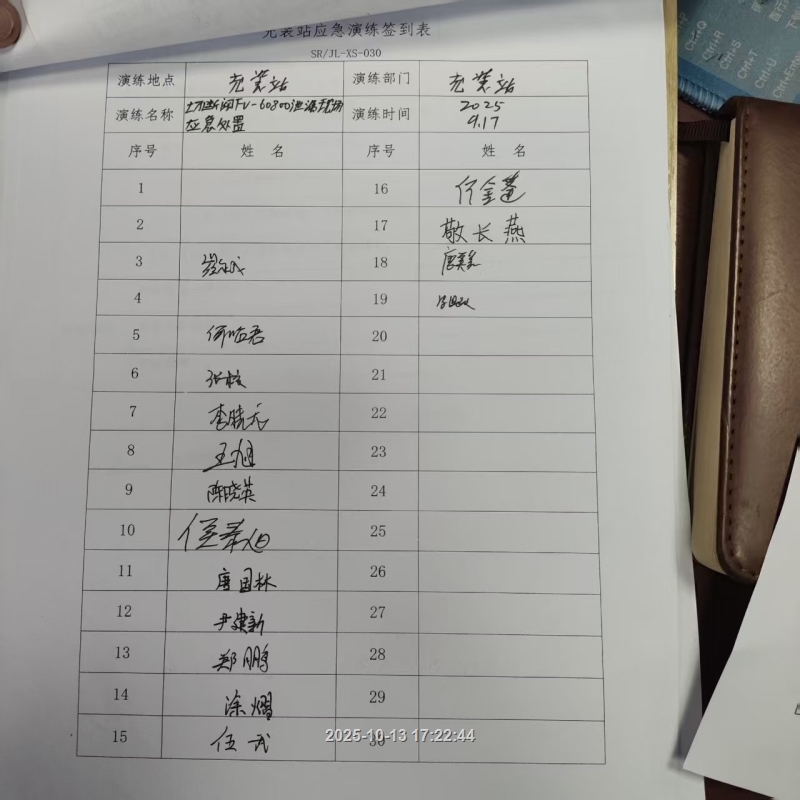 充装站应急演练签到表
SR/JL-XS-030
演练地点 充装站 演练部门 充装站
演练名称 切断阀FV-60800泄漏现场 演练时间 2025
应急处置 9.17
序号 姓 名 序号 姓 名
1 16
2 17 敬长燕
3 18
4 19
5 何临君 20
6 21
7 李晓东 22
8 王旭 23
9 陈晓英 24
10 25
11 唐国林 26
12 尹建新 27
13 郑鹏 28
14 涂熠 29
15 伍武 30
2025-10-13 17:22:44
Ctrl+Q
Ctrl+R
Ctrl+S
Ctrl+T
Ctrl+U